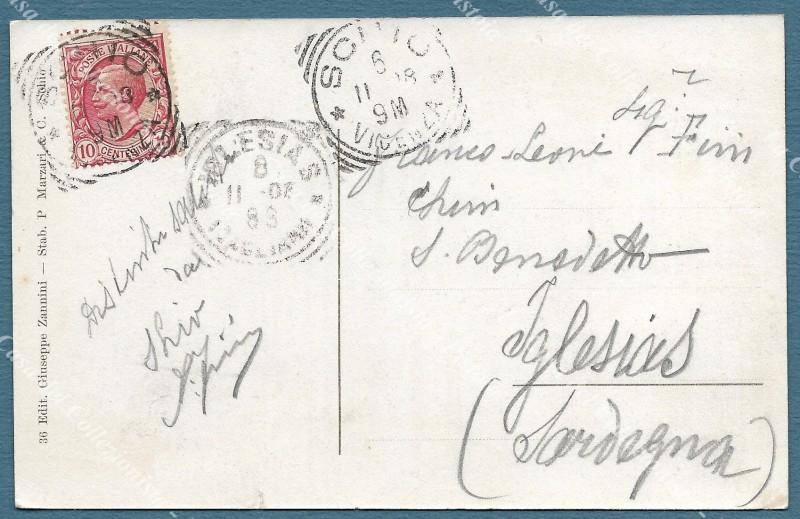 36 Edit. Giuseppe Zannini — Stab. P Marzari & C. Schio
POSTE ITALIANE
10 CENTESIMI
SCHIO
6
11 08
9M
VICENZA
IGLESIAS
8
11 08
8S
CAGLIARI
Distinti saluti
da
Schio
Sig.
Franco Leoni
S. Benedetto
Iglesias
(Sardegna)